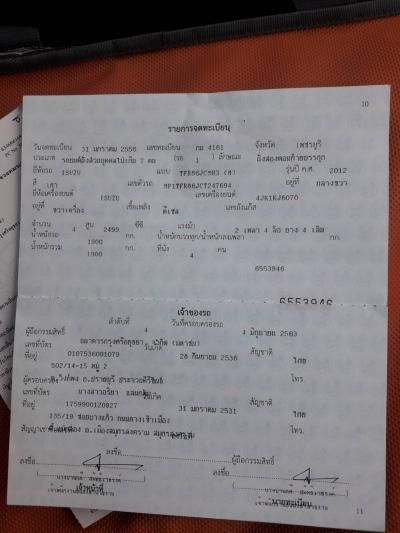 10
รายการจดทะเบียน
วันจดทะเบียน 31 มกราคม 2556 เลขทะเบียน กม 4161 จังหวัด เพชรบุรี
ประเภท รถยนต์นั่งส่วนบุคคลไม่เกิน 7 คน (รย 1 ) ลักษณะ นั่งสองตอนท้ายบรรทุก
ยี่ห้อรถ ISUZU แบบ รุ่นปี ค.ศ. 2012
สี เทา เลขตัวรถ MP1TFR86JCT247694 อยู่ที่ กลางขวา
ยี่ห้อเครื่องยนต์ ISUZU เลขเครื่องยนต์ 4JK1KJ6070
อยู่ที่ ขวาเครื่อง เชื้อเพลิง ดีเซล เลขถังแก๊ส
จำนวน 4 สูบ 2499 ซีซี แรงม้า 2 เพลา 4 ล้อ ยาง 4 เส้น
น้ำหนักรถ 1900 กก. น้ำหนักบรรทุก/น้ำหนักลงเพลา กก.
น้ำหนักรวม 1900 กก. ที่นั่ง 4 คน
6553946
6553946
เจ้าของรถ
ลำดับที่ 4 วันที่ครอบครองรถ 4 มิถุนายน 2563
ผู้ถือกรรมสิทธิ์ ธนาคารกรุงศรีอยุธยา จำกัด (มหาชน)
เลขที่บัตร 0107536001079 วันเกิด 28 กันยายน 2536 สัญชาติ ไทย
ที่อยู่ 502/14-15 หมู่ 2
โทร.
ผู้ครอบครอง นางสาวอริยา
เลขที่บัตร 1759900120827 วันเกิด 31 มกราคม 2531 สัญชาติ ไทย
ที่อยู่ 135/19 ซอยบางแก้ว ถนนทางเข้าเมือง
อ.เมืองสมุทรสงคราม โทร.
สัญญาเช่าซื้อ
ลงชื่อ ผู้ถือกรรมสิทธิ์
ลงชื่อ ลงชื่อ
เจ้าหน้าที่ นายทะเบียน
11